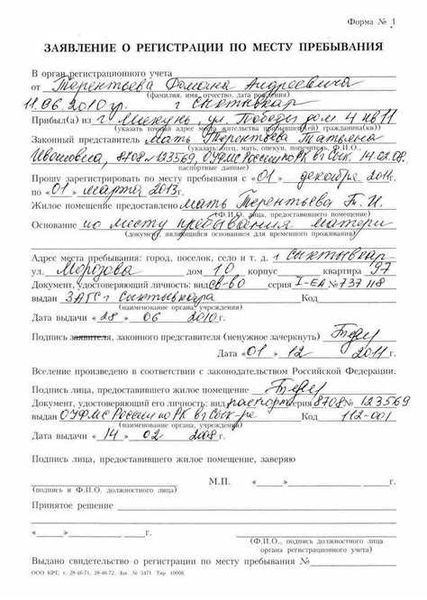 Форма № 1
ЗАЯВЛЕНИЕ О РЕГИСТРАЦИИ ПО МЕСТУ ПРЕБЫВАНИЯ
В орган регистрационного учета
от Терентьева Романа Андреевича
(фамилия, имя, отчество, дата рождения)
11.06.2010 гр. г Сыктывкар
Прибыл(а) из г Микунь, ул. Победы дом 4 кв 11
(указать точный адрес места жительства прибывшего(ей) гражданина(ки))
Законный представитель Мать Терентьева Татьяна
(указать: отец, мать, опекун, попечитель, Ф.И.О.,
Ивановна, 8708 № 123569, ОУФМС России по РК в г Сык. 14.02.08.
паспортные данные)
Прошу зарегистрировать по месту пребывания с «01» декабря 2011г.
по «01» марта 2013г.
Жилое помещение предоставлено мать Терентьева Т. И.
(Ф.И.О. лица, предоставившего помещение)
Основание по месту пребывания матери
(документ являющийся основанием для временного проживания)
Адрес места пребывания: город, поселок, село и т. д. г Сыктывкар
ул. Морозова дом 10 корпус квартира 97
Документ, удостоверяющий личность: вид св-во серия I-ЕА № 737 118
выдан ЗАГС г Сыктывкара Код
(наименование органа, учреждения)
Дата выдачи «28» 06 2010 г.
Подпись заявителя, законного представителя (ненужное зачеркнуть)
Дата «01» 12 2011 г.
Вселение произведено в соответствии с законодательством Российской Федерации.
Подпись лица, предоставившего жилое помещение
Документ, удостоверяющий его личность: вид паспорт серия 8708 № 123569
выдан ОУФМС России по РК в г Сык-ре Код 112-001
(наименование органа, учреждения)
Дата выдачи «14» 02 2008 г.
Подпись лица, предоставившего жилое помещение, заверяю
М.П. « » г.
(подпись и Ф.И.О. должностного лица)
Принятое решение
« » г.
(Ф.И.О., подпись должностного лица
органа регистрационного учета)
Выдано свидетельство о регистрации по месту пребывания №
ООО КРТ. т. 28-46-71, 28-46-72. Зак. № 2471. Тир. 10000.